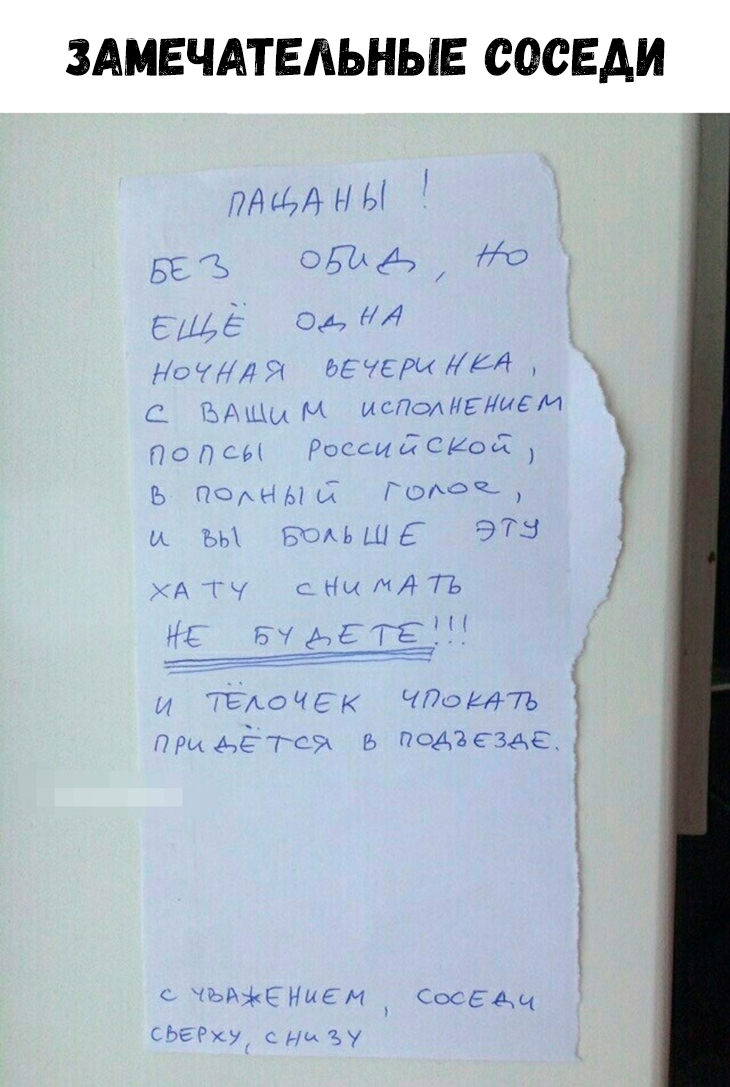 ЗАМЕЧАТЕЛЬНЫЕ СОСЕДИ
ПАЩАНЫ!
БЕЗ ОБИД, НО
ЕЩЁ ОДНА
НОЧНАЯ ВЕЧЕРИНКА,
С ВАШИМ ИСПОЛНЕНИЕМ
ПОПСЫ РОССИЙСКОЙ,
В ПОЛНЫЙ ГОЛОС,
И ВЫ БОЛЬШЕ ЭТУ
ХАТУ СНИМАТЬ
НЕ БУДЕТЕ!!!
И ТЁЛОЧЕК ЧПОКАТЬ
ПРИДЁТСЯ В ПОДЪЕЗДЕ.
С УВАЖЕНИЕМ, СОСЕДИ
СВЕРХУ, СНИЗУ